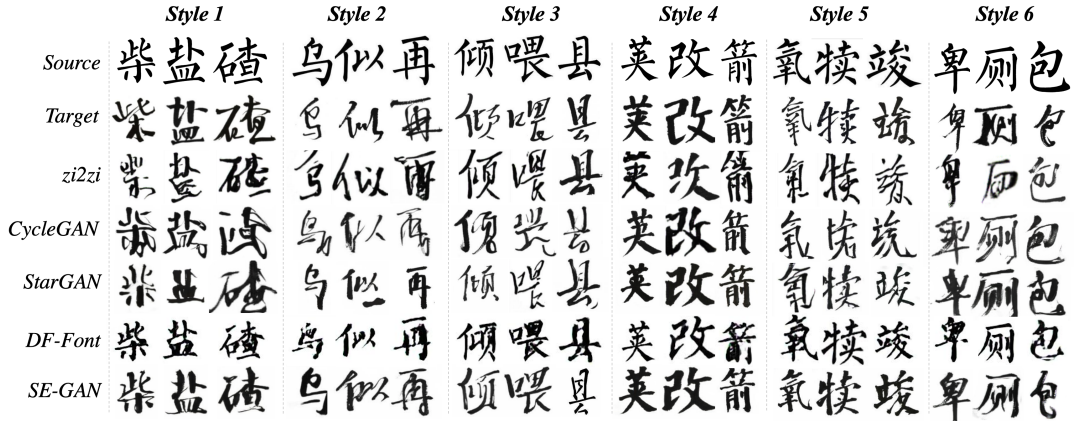 Style 1 Style 2 Style 3 Style 4 Style 5 Style 6
Source 柴盐碴 乌似再 倾喂县 英改箭 氧犊竣 卑厕包
Target 柴盐碴 乌似再 倾喂县 英改箭 氧犊竣 卑厕包
zi2zi 柴盐碴 乌似再 倾喂县 英改箭 氧犊竣 卑厕包
CycleGAN 盐 乌似再 倾 英改箭 氧 卑厕包
StarGAN 柴盐碴 乌似再 倾喂县 英改箭 氧犊竣 卑厕包
DF-Font 柴盐碴 乌似再 倾喂县 英改箭 氧犊竣 卑厕包
SE-GAN 柴盐碴 乌似再 倾喂县 英改箭 氧犊竣 卑厕包